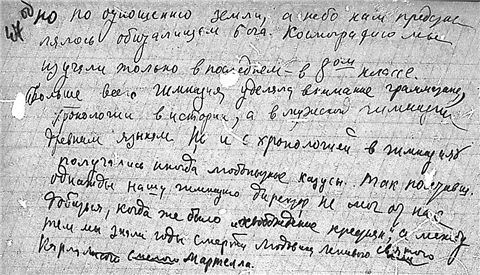 но по отношению земли, а небо нам представ
лялось обиталищем бога. Космографию мы
изучали только в последнем - в 8ом классе.
Больше всего гимназия уделяла внимание грамматике,
хронологии в истории, а в мужской гимназии
древним языкам. Но и с хронологией в гимназиях
получались иногда любопытные казусы. Так
однажды нашу гимназию директор не мог от нас
добиться, когда же было освобождение крестьян, а между
тем мы знали годы смерти Людовика святого
Карла смелого Мартелла.